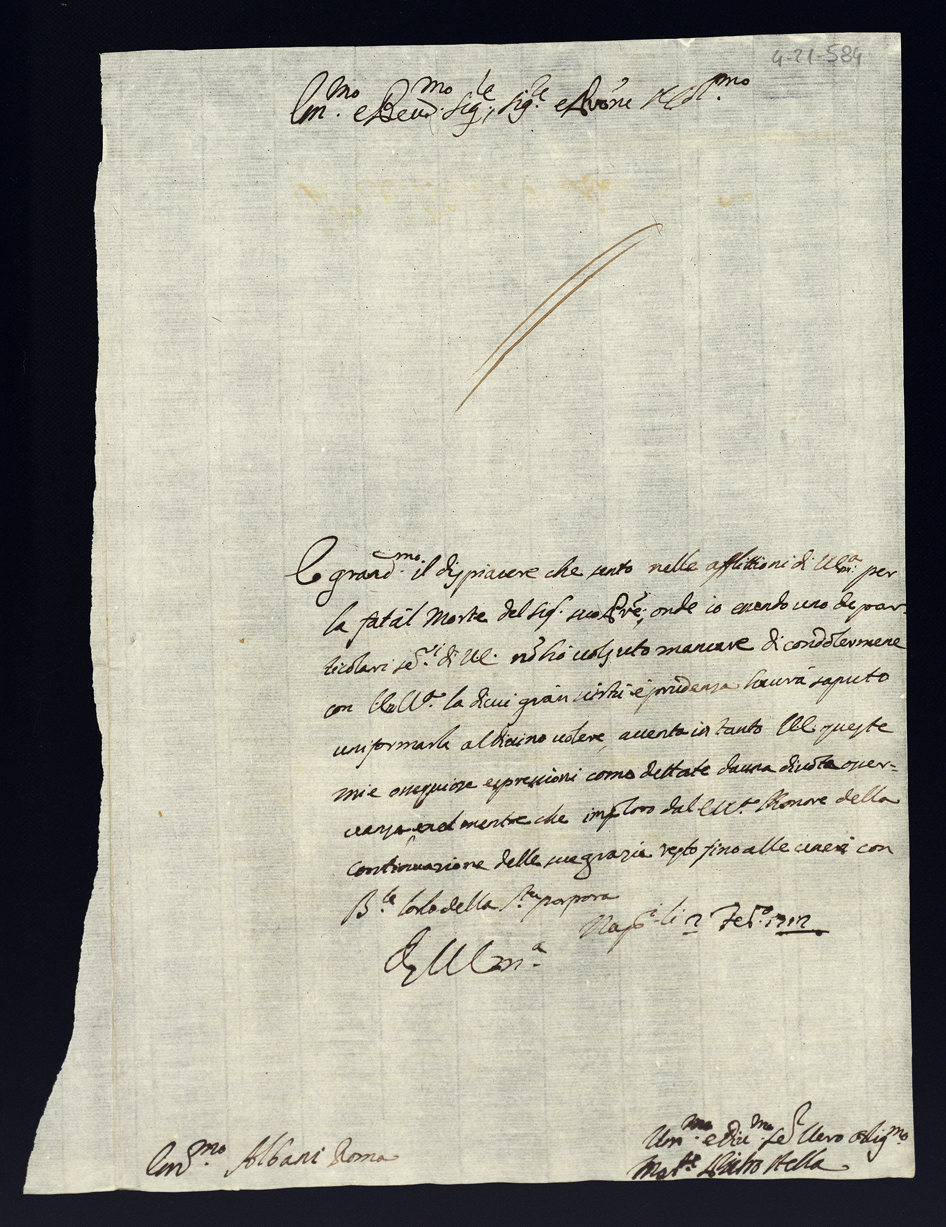 4-21-584
Em.mo e Rev.mo Sig.re, Sig.re e Prōne
E grand.mo il dispiacere che sento nelle afflittioni di V.Em.a per
la fatal Morte del Sig.r suo Pre, onde io essendo uno de par-
ticolari ser.ri di V.E. nō hò volsuto mancare di condolermene
con l'E.V.a la di cui gran virtù e prudenza haurà saputo
uniformarla al Divino volere, accetta in tanto V.E. queste
mie ossequiose espressioni come dettate da una divota osser=
vanza, e nel mentre che imploro dal E.V.a l'honore della
continuazione delle sue grazie resto fino alle ceneri con
B.le l'orlo della S.ra porpora
Nap.i li 2 Feb.o 1712
D V Em.a
Em.mo Albani Roma
Um.mo e div.mo Se.r Vero oblig.mo
Pietro Stella